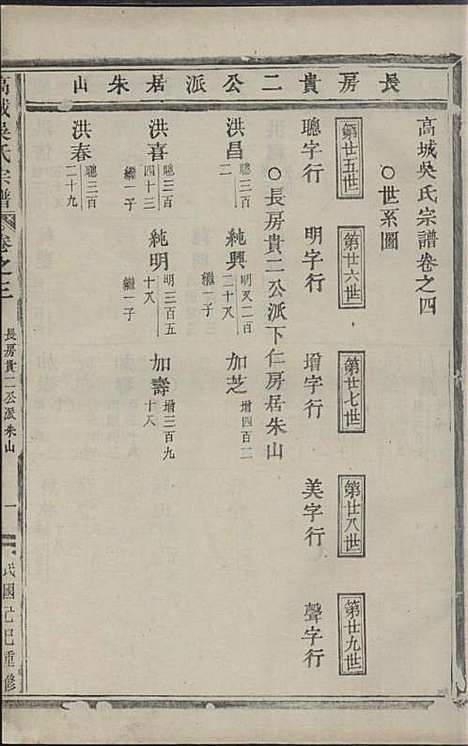 長房貴二公派居朱山
高城吳氏宗譜卷之四
○世系圖
第廿五世
第廿六世
第廿七世
第廿八世
第廿九世
聰字行
明字行
增字行
美字行
聲字行
○長房貴二公派下仁房居朱山
洪昌
聰三百
二
純興
明又二百
二十八
加芝
增四百二
洪喜
聰三百
四十三
繼一子
純明
明三百五
十八
繼一子
加壽
增三百九
十八
洪春
聰三百
二十九
高城吳氏宗譜
卷之三
長房貴二公派朱山
一
民國己巳重修